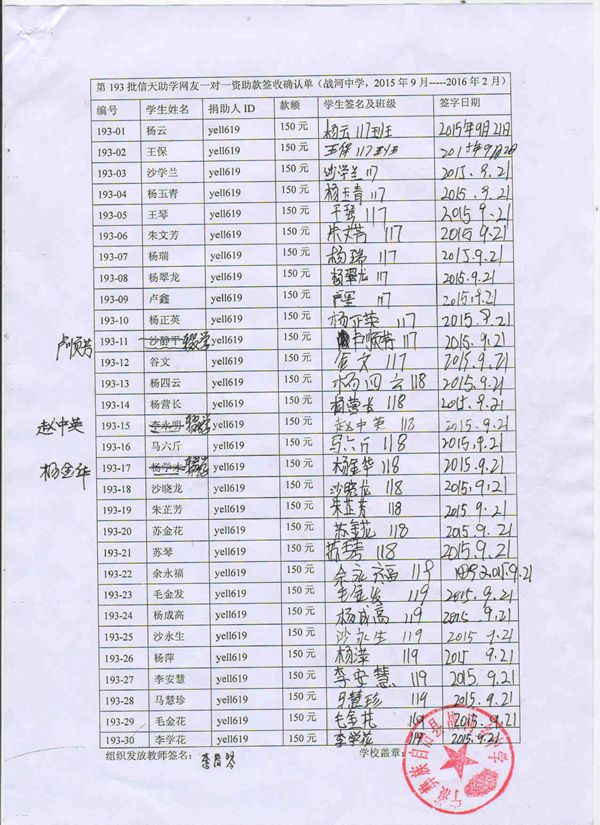 第 193 批信天助学网友一对一资助款签收确认单（战河中学，2015 年 9 月-----2016 年 2 月）
编号 学生姓名 捐助人 ID 款额 学生签名及班级 签字日期
193-01 杨云 yell619 150 元 杨云 117班 2015年9月21日
193-02 王保 yell619 150 元 王保 117班 2015年9月21日
193-03 沙学兰 yell619 150 元 沙学兰 117 2015.9.21
193-04 杨玉青 yell619 150 元 杨玉青 117 2015.9.21
193-05 王琴 yell619 150 元 王琴 117 2015.9.21
193-06 朱文芳 yell619 150 元 朱文芳 117 2015.9.21
193-07 杨瑞 yell619 150 元 杨瑞 117 2015.9.21
193-08 杨翠龙 yell619 150 元 杨翠龙 117 2015.9.21
193-09 卢鑫 yell619 150 元 117 2015.9.21
193-10 杨正英 yell619 150 元 杨正英 117 2015.9.21
193-11 沙静平 辍学 yell619 150 元 117 2015.9.21
193-12 谷文 yell619 150 元 117 2015.9.21
193-13 杨四云 yell619 150 元 杨四云 118 2015.9.21
193-14 杨营长 yell619 150 元 杨营长 118 2015.9.21
赵中英 193-15 李永明 辍学 yell619 150 元 赵中英 118 2015.9.21
193-16 马六斤 yell619 150 元 马六斤 118 2015.9.21
杨金华 193-17 辍学 yell619 150 元 杨金华 118 2015.9.21
193-18 沙晓龙 yell619 150 元 沙晓龙 118 2015.9.21
193-19 朱芷芳 yell619 150 元 朱芷芳 118 2015.9.21
193-20 苏金花 yell619 150 元 苏金花 118 2015.9.21
193-21 苏琴 yell619 150 元 118 2015.9.21
193-22 余永福 yell619 150 元 余永福 119 2015.9.21
193-23 毛金发 yell619 150 元 毛金发 119 2015.9.21
193-24 杨成高 yell619 150 元 杨成高 119 2015.9.21
193-25 沙永生 yell619 150 元 沙永生 119 2015 9.21
193-26 杨萍 yell619 150 元 杨萍 119 2015 9.21
193-27 李安慧 yell619 150 元 李安慧 119 2015.9.21
193-28 马慧珍 yell619 150 元 马慧珍 119 2015.9.21
193-29 毛金花 yell619 150 元 毛金花 119 2015.9.21
193-30 李学花 yell619 150 元 李学花 119 2015.9.21
组织发放教师签名： 学校盖章：